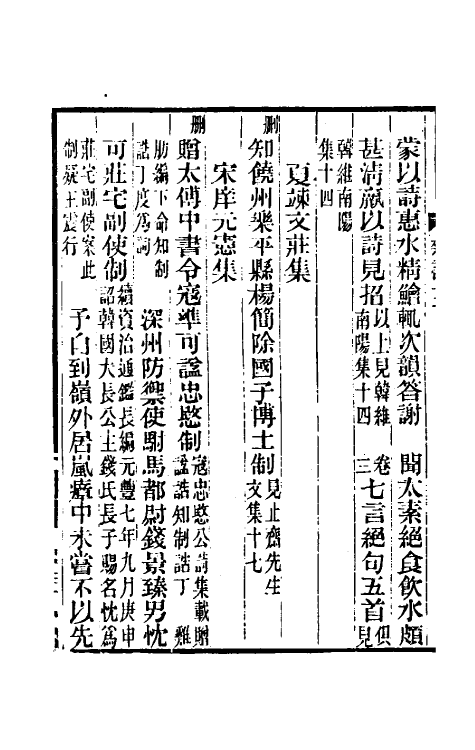 蒙以詩惠水精鱠輒次韻答謝　聞太素絕食飲水頗
甚清羸以詩見招以上見韓維南陽集十四　卷三七言絕句五首但見
韓維南陽集十四
夏竦文莊集
刪
知饒州樂平縣楊簡除國子博士制見止齋先生文集十七
宋庠元憲集
刪
贈太傅中書令寇準可謚忠愍制寇忠愍公詩集載贈謚誥知制誥丁
肪編下命知制誥丁度為詞　深州防禦使駙馬都尉錢景臻男忱
可莊宅副使制續資治通鑑長編元豐七年九月庚申詔韓國大長公主錢氏長子賜名忱為
莊宅副使案此制疑王震行　予自到嶺外居嵐瘴中未嘗不以先